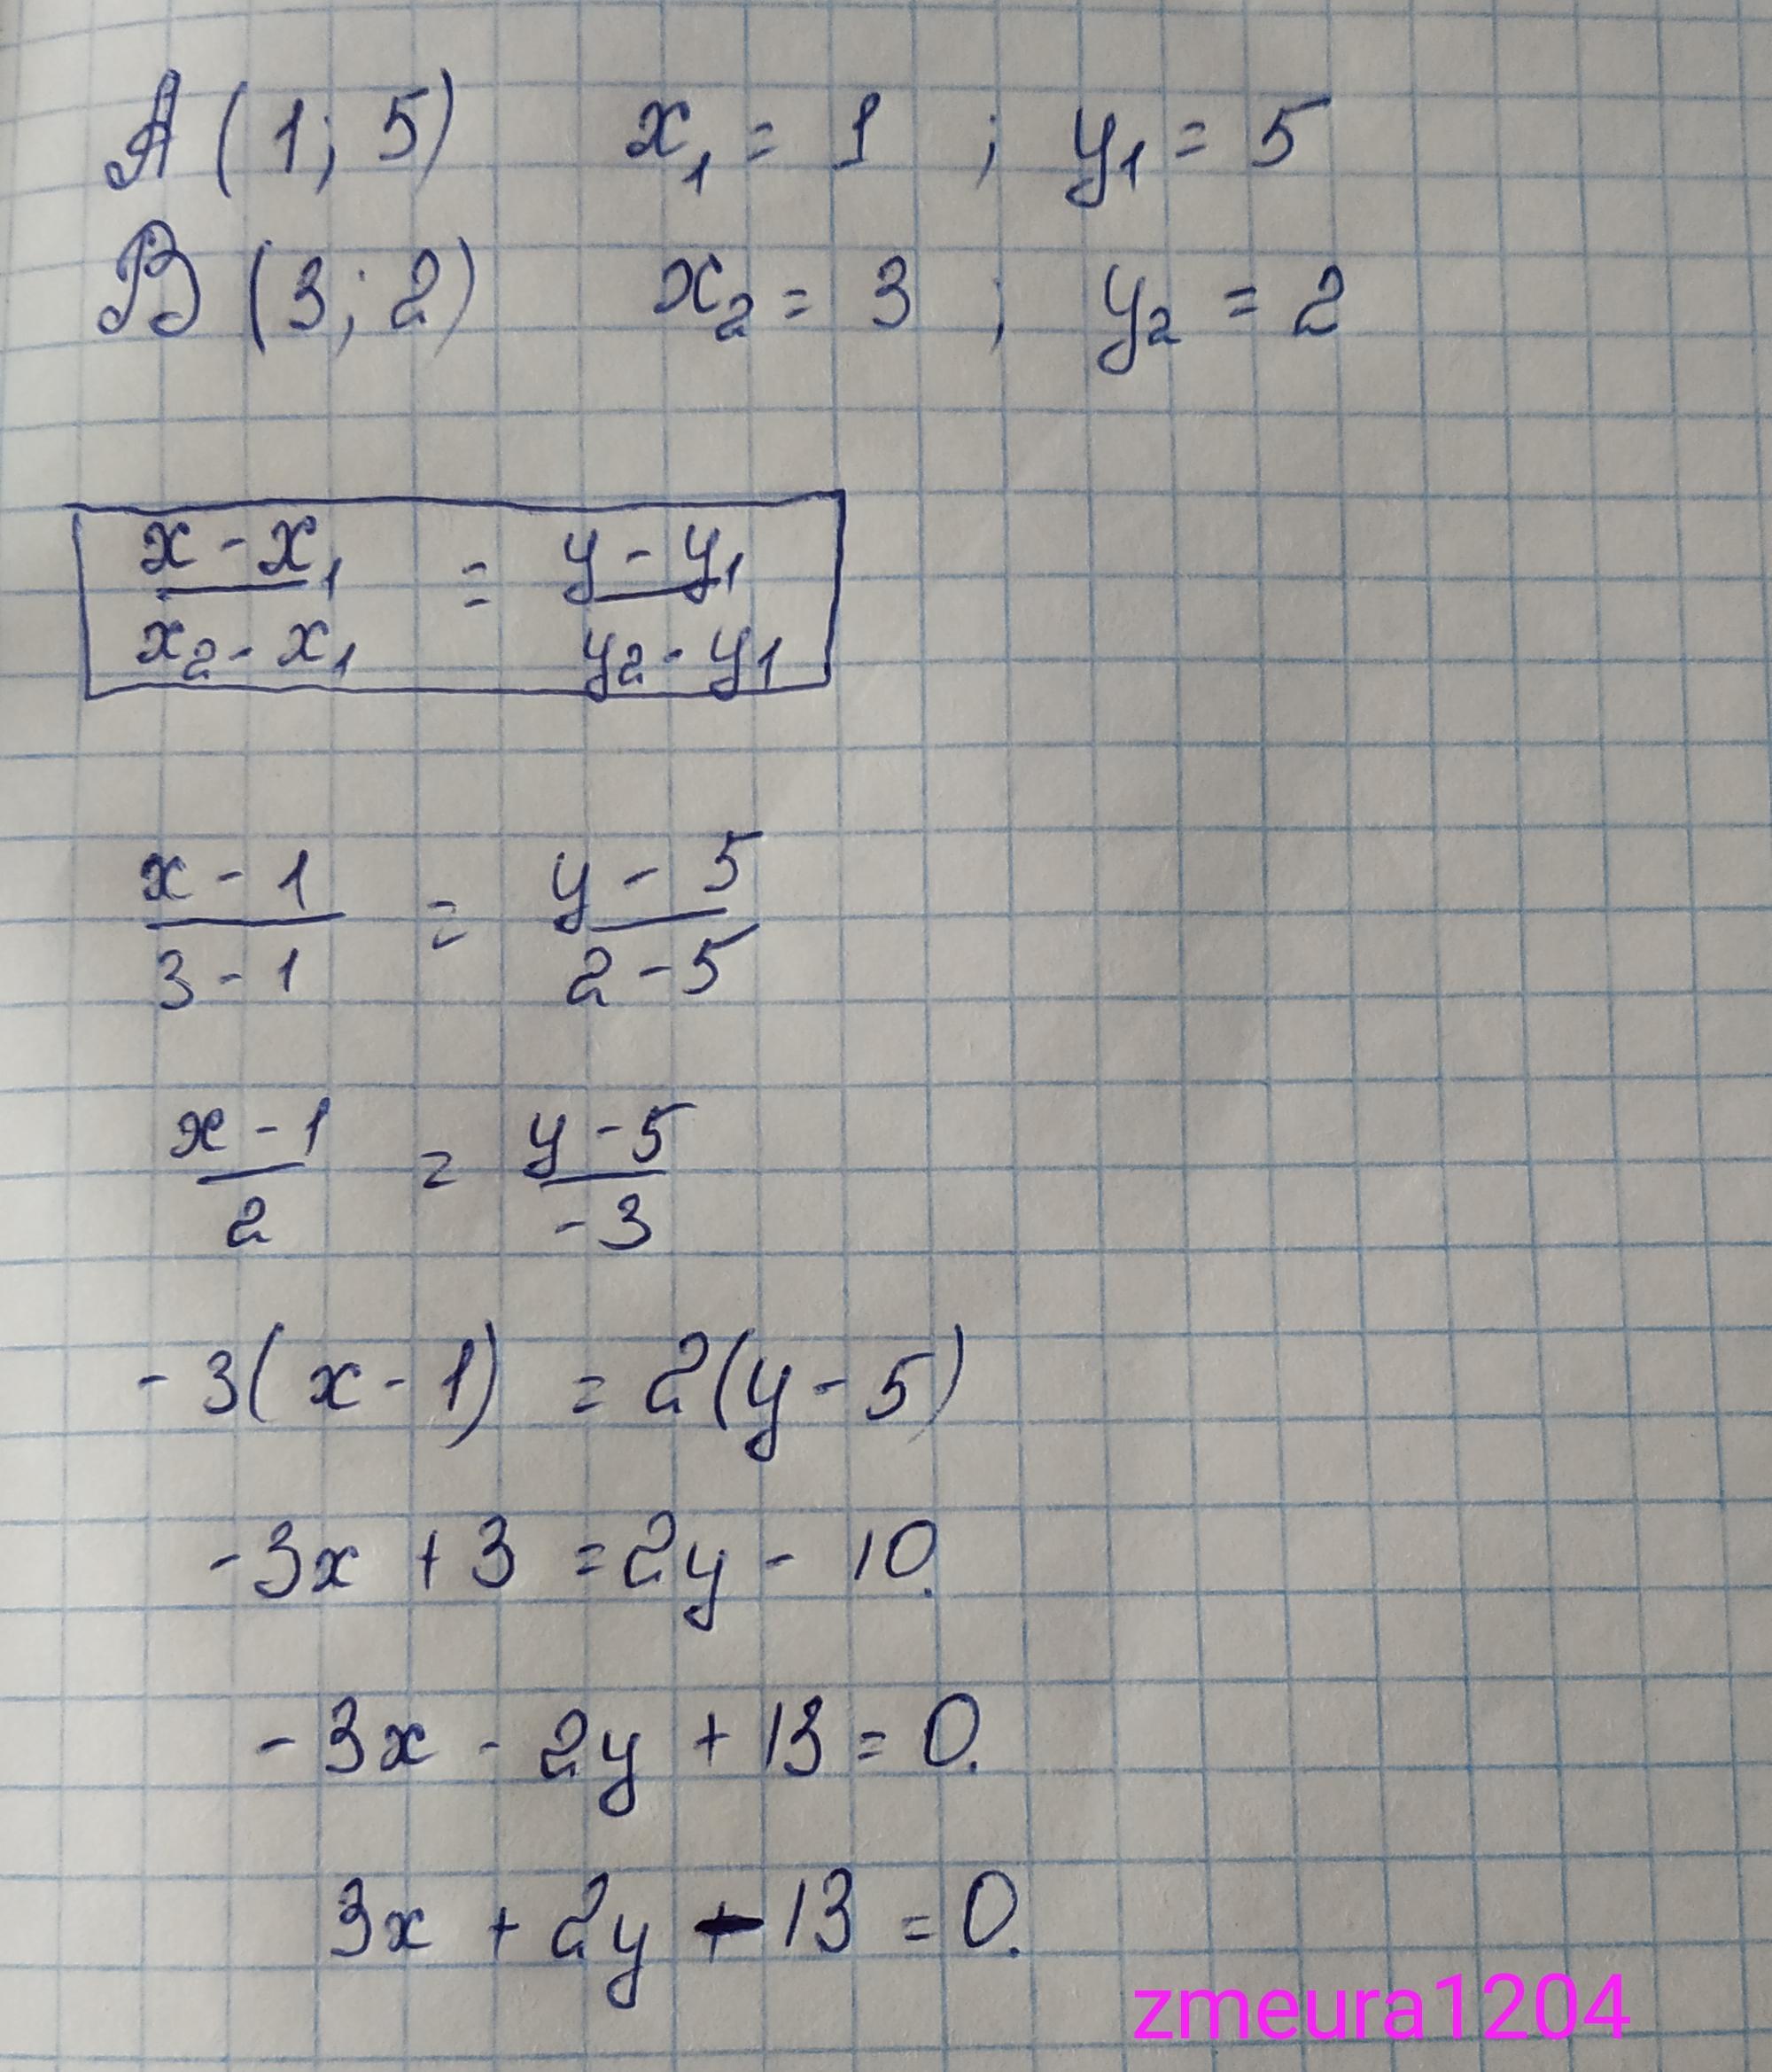 A (1; 5)   x₁ = 1 ; y₁ = 5
B (3; 2)   x₂ = 3 ; y₂ = 2
x - x₁ = y - y₁
x₂ - x₁   y₂ - y₁
x - 1 = y - 5
3 - 1   2 - 5
x - 1 = y - 5
2   -3
-3(x - 1) = 2(y - 5)
-3x + 3 = 2y - 10.
-3x - 2y + 13 = 0.
3x + 2y - 13 = 0.
zmeura1204